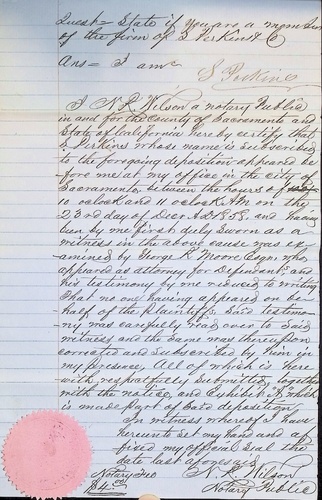 Quest= State if you are a member
of the firm of S Perkins & Co
Ans= I am
S Perkins
I N. R. Wilson a notary Public
in and for the County of Sacramento and
State of California hereby certify that
S. Perkins whose name is subscribed
to the foregoing deposition appeared be
fore me at my office in the city of
Sacramento between the hours of
10 oclock and 11 oclock AM on the
23rd day of Decr AD 1858, and having
been by me first duly sworn as a
witness in the above cause was ex
amined by George R Moore Esqr who
appeared as attorney for Defendants and
his testimony by me reduced to writing
That no one having appeared on be
half of the Plaintiffs. Said testimo
ny was carefully read over to said
witness and the same was thereupon
corrected and subscribed by him in
my presence, All of which is here
with respectfully submitted, together
with the notice, and Exhibit A which
is made part of said deposition
In witness whereof I have
hereunto set my hand and af
fixed my official Seal the
date last aforesaid
N. R. Wilson
Notary Public
Notary Fee
$4.00